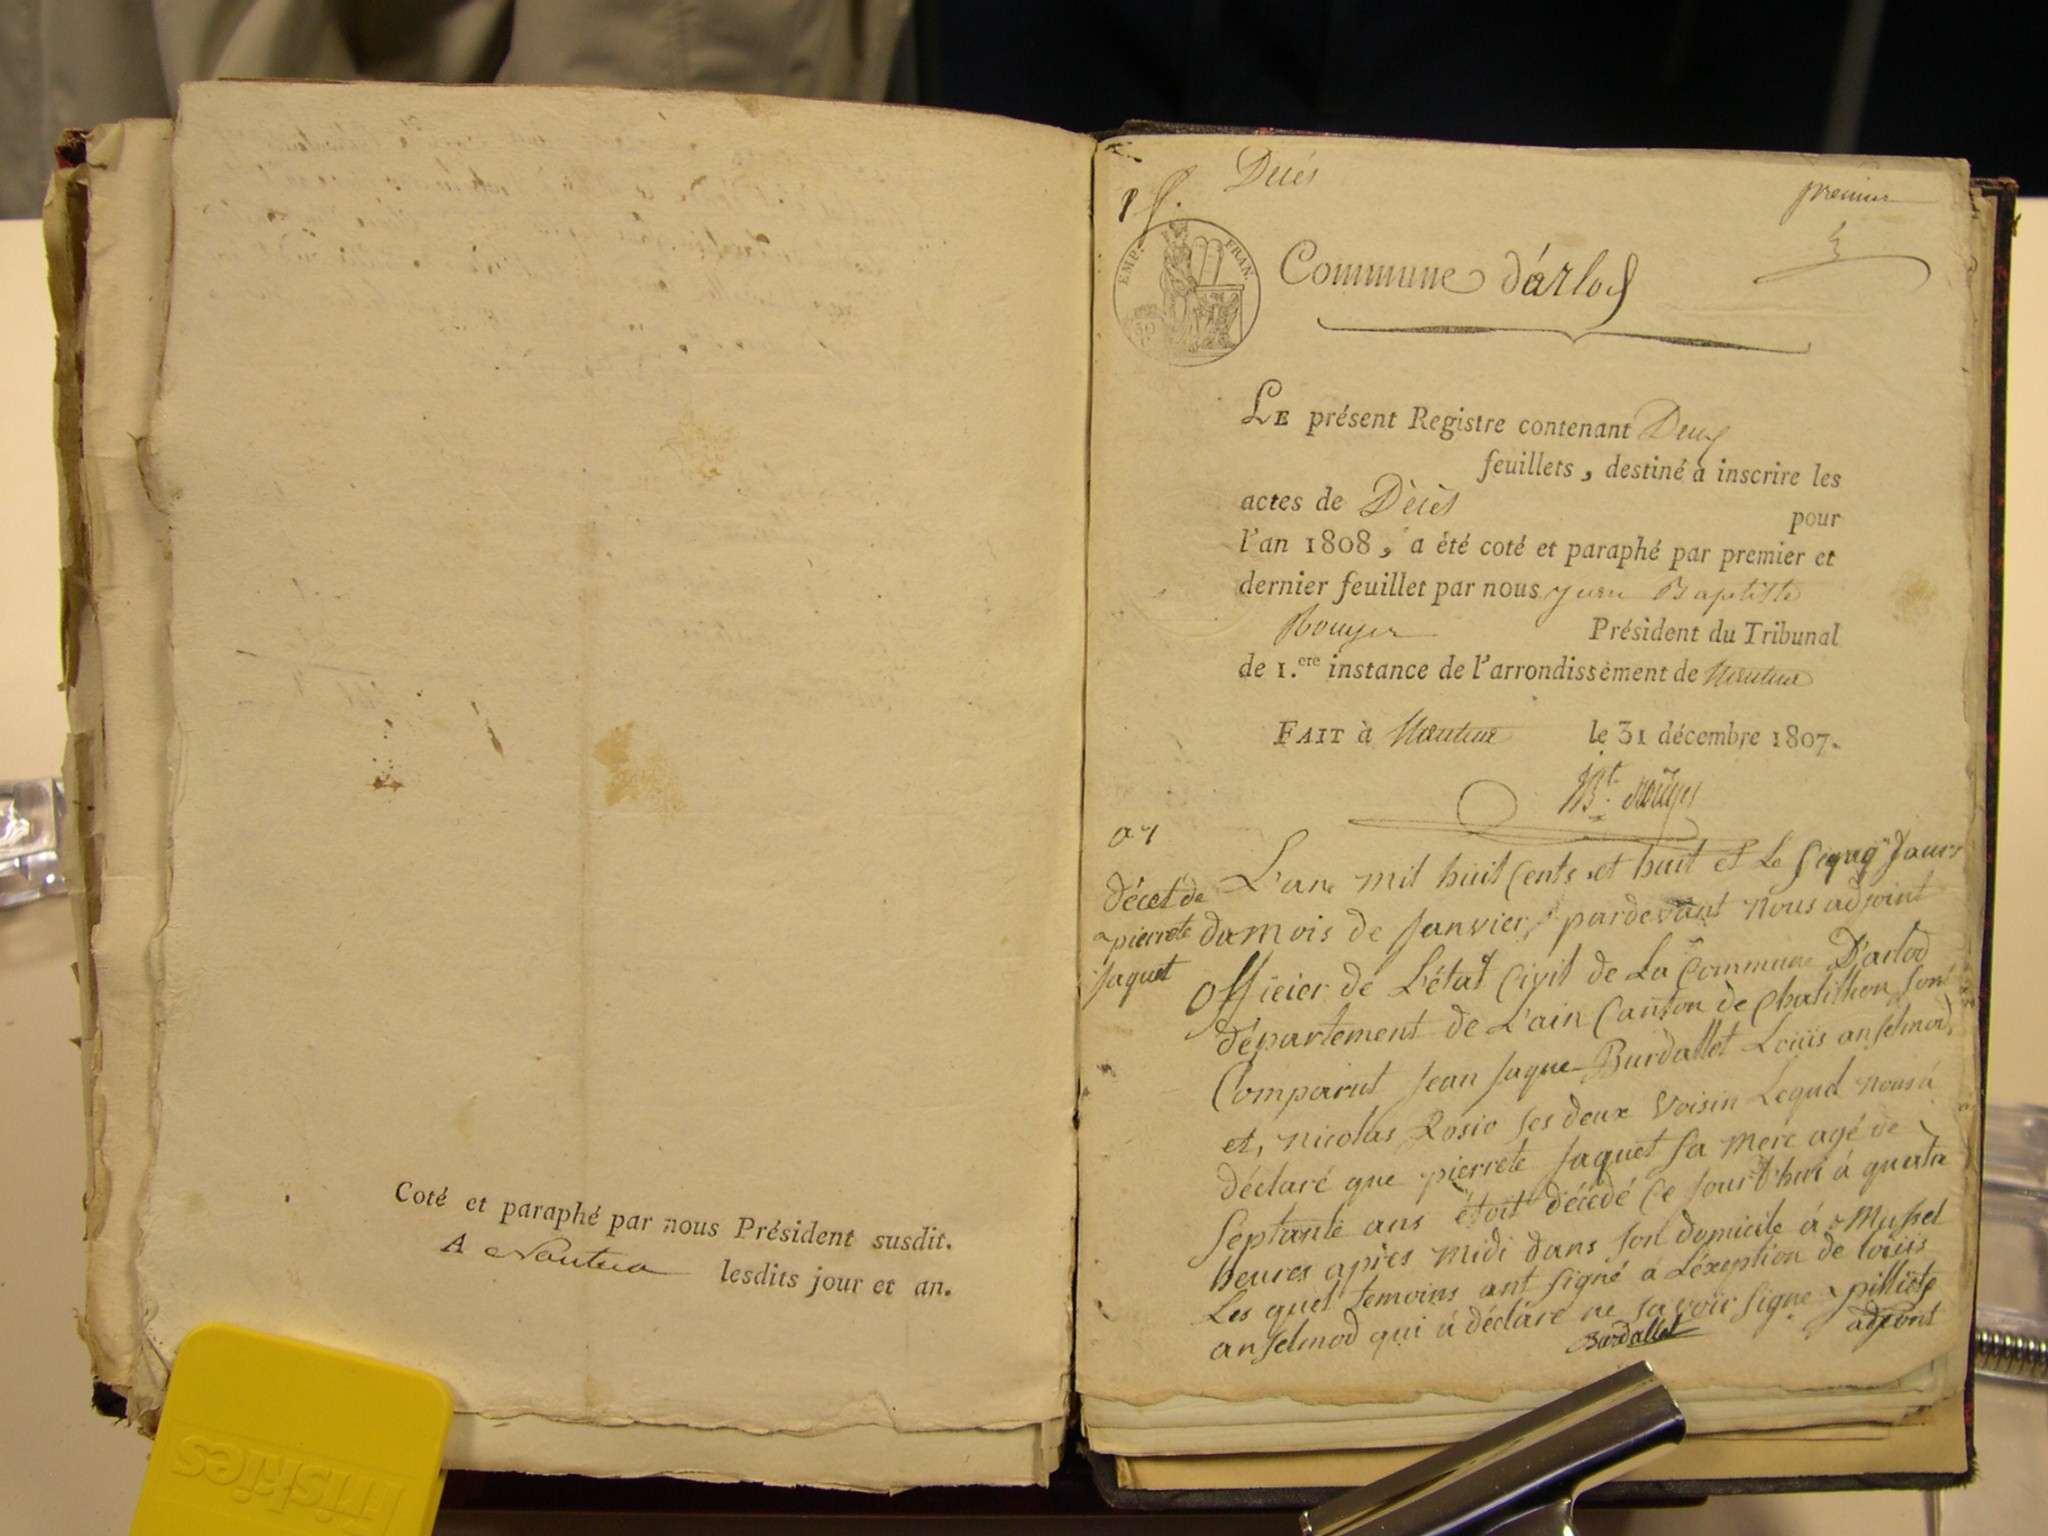 Coté et paraphé par nous Président susdit.
A Nantua lesdits jour et an.
friskies
Décès
premier
EMP. FRAN.
30
Commune d'arlod
LE présent Registre contenant Deux
feuillets, destiné à inscrire les
actes de Décès pour
l'an 1808, a été coté et paraphé par premier et
dernier feuillet par nous Jean Baptiste
Rouyer Président du Tribunal
de 1.ere instance de l'arrondissement de Nantua
FAIT à Nantua le 31 décembre 1807.
décet de
pierrete
Jaquet
L'an mil huit Cents et huit et Le Jours
du mois de Janvier, pardevant nous adjoint
Officier de L'état Civil de La Commune D'arlod
département de L'ain Canton de Chatillon Son
Comparut Jean Jaque Burdallet Loüis anselmod,
et, nicolas Rosic ses deux Voisin Lequel nous à
déclaré que pierrete Jaquet Sa mere agé de
Septante ans étoit décédé Ce Jourd'hui à quatre
heures apres midi dans son domicile à Mussel
Les quel temoins ont signé à L'éxeption de loüis
anselmod qui à déclaré ne savoir signe
pilliet
adjoint
Burdallet